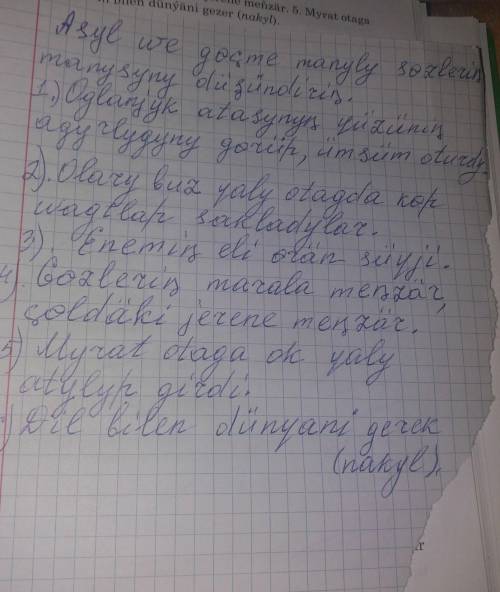 meňzär. 5. Myrat otaga
bilen dünýäni gezer (nakyl).
Asyl we göçme manyly sözleriň
manysyny düşündiriň.
1.) Oglanjyk atasynyň ýüzüniň
agyrlygyny görüp, ümsüm oturdy.
2). Olary buz ýaly otagda köp
wagtlap sakladylar.
3). Enemiň eli örän süýji.
4). Gözleriň marala meňzär,
çöldäki jerene meňzär.
5) Myrat otaga ok ýaly
atylyp girdi.
) Dil bilen dünýäni gerek
(nakyl).